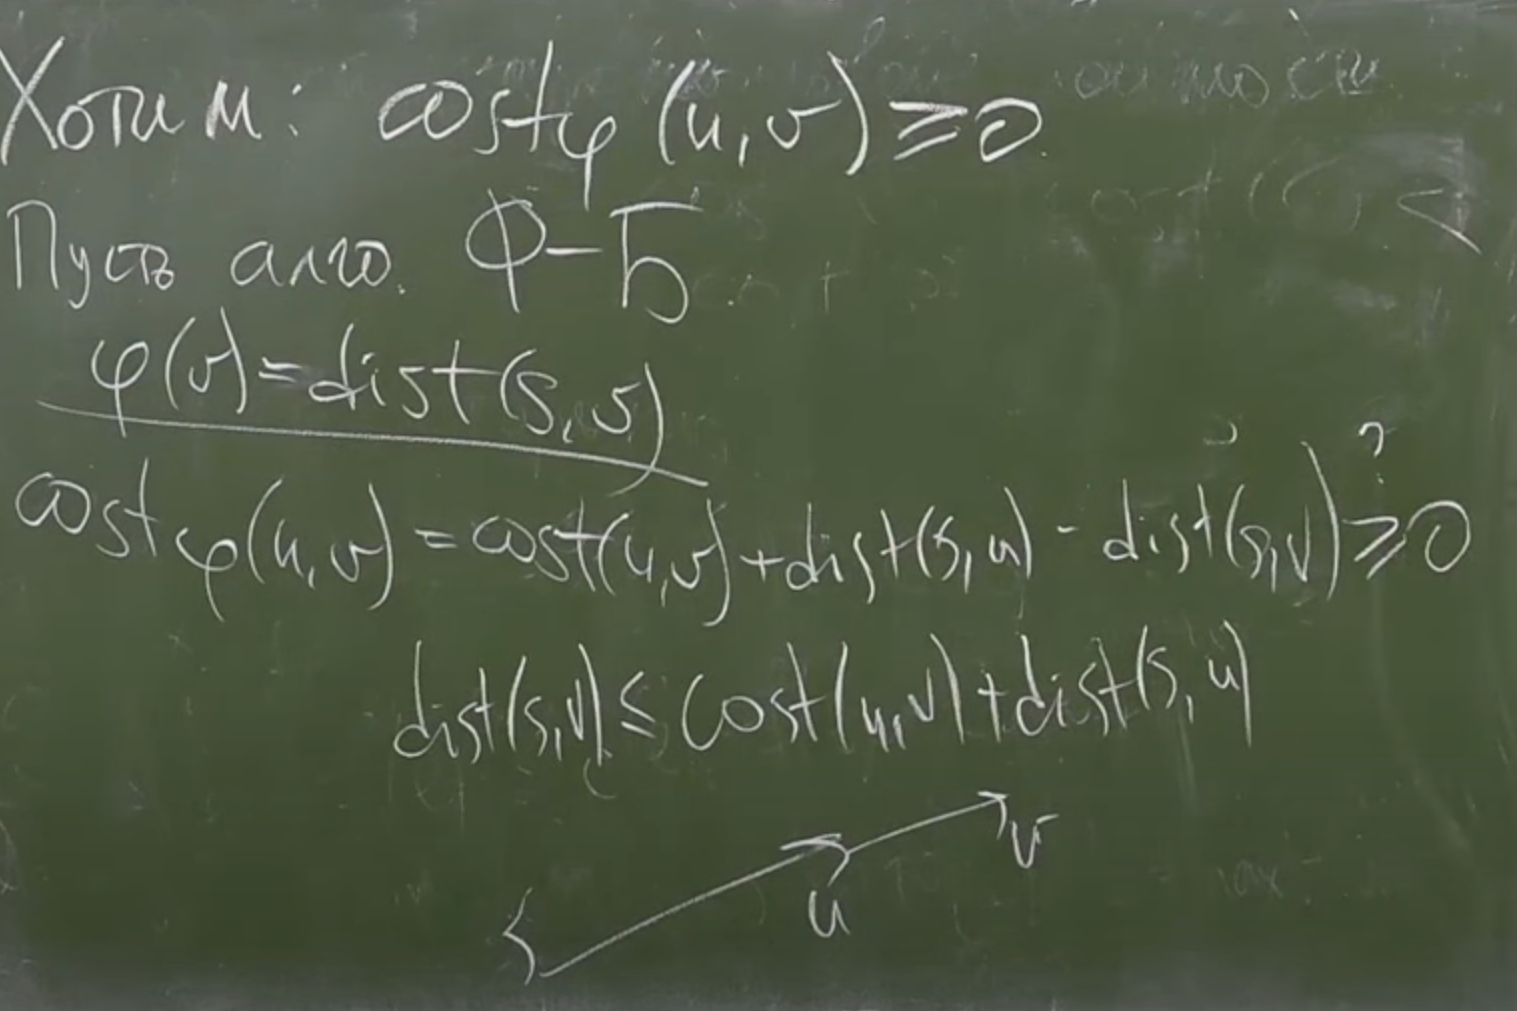 Хотим: cost_φ(u,v) ≥ 0
Пусть алго. Ф-Б
φ(v) = dist(s,v)
cost_φ(u,v) = cost(u,v) + dist(s,u) - dist(s,v) ≥ 0 ?
dist(s,v) ≤ cost(u,v) + dist(s,u)
s u v